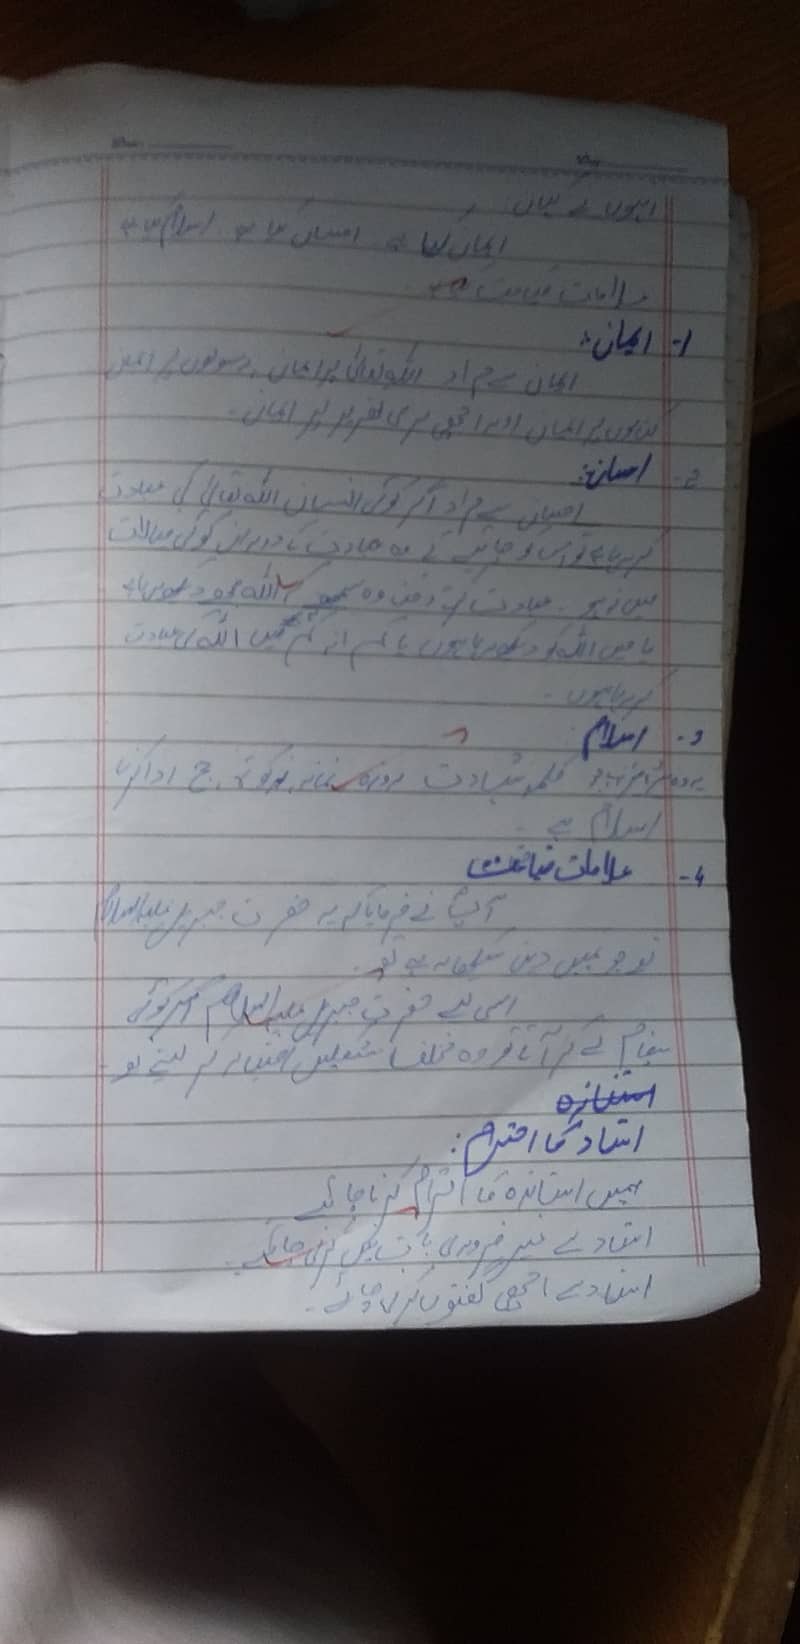 ایمان کیا ہے احسان کیا ہے اسلام کیا ہے
علامات قیامت
1- ایمان:
ایمان سے مراد اللہ تعالیٰ پر ایمان، رسولوں پر ایمان
کتابوں پر ایمان اور اچھی بری تقدیر پر ایمان۔
2- احسان:
احسان سے مراد اگر کوئی انسان اللہ تعالیٰ کی عبادت
کر رہا ہے تو اس کو چاہیے کے وہ عبادت کا دوران کوئی خیالات
میں نہ ہو۔ عبادت کرتے وقت وہ اللہ مجھ کو دیکھ رہا ہے
یا میں اللہ کو دیکھ رہا ہوں یا کم از کم میں اللہ کی عبادت
کر رہا ہوں۔
3- اسلام
کلمہ شہادت روزہ نماز، زکوٰۃ، حج ادا کرنا
اسلام ہے۔
4- علامات قیامت
آپؐ نے فرمایا کہ یہ حضرت جبریل علیہ السلام
جو تمہیں دین سکھانے
اسی لیے حضرت جبریل علیہ السلام اگر کوئی
پیغام لے کر آتا تو وہ مختلف شکلیں اختیار کر لیتے
استازہ
استاد کا احترام:
ہمیں استازہ کا احترام کرنا چاہئے
استاد سے غیر ضروری بات نہیں کرنی چاہئے۔
استاد سے اچھی گفتگوں کرنا چاہئے۔